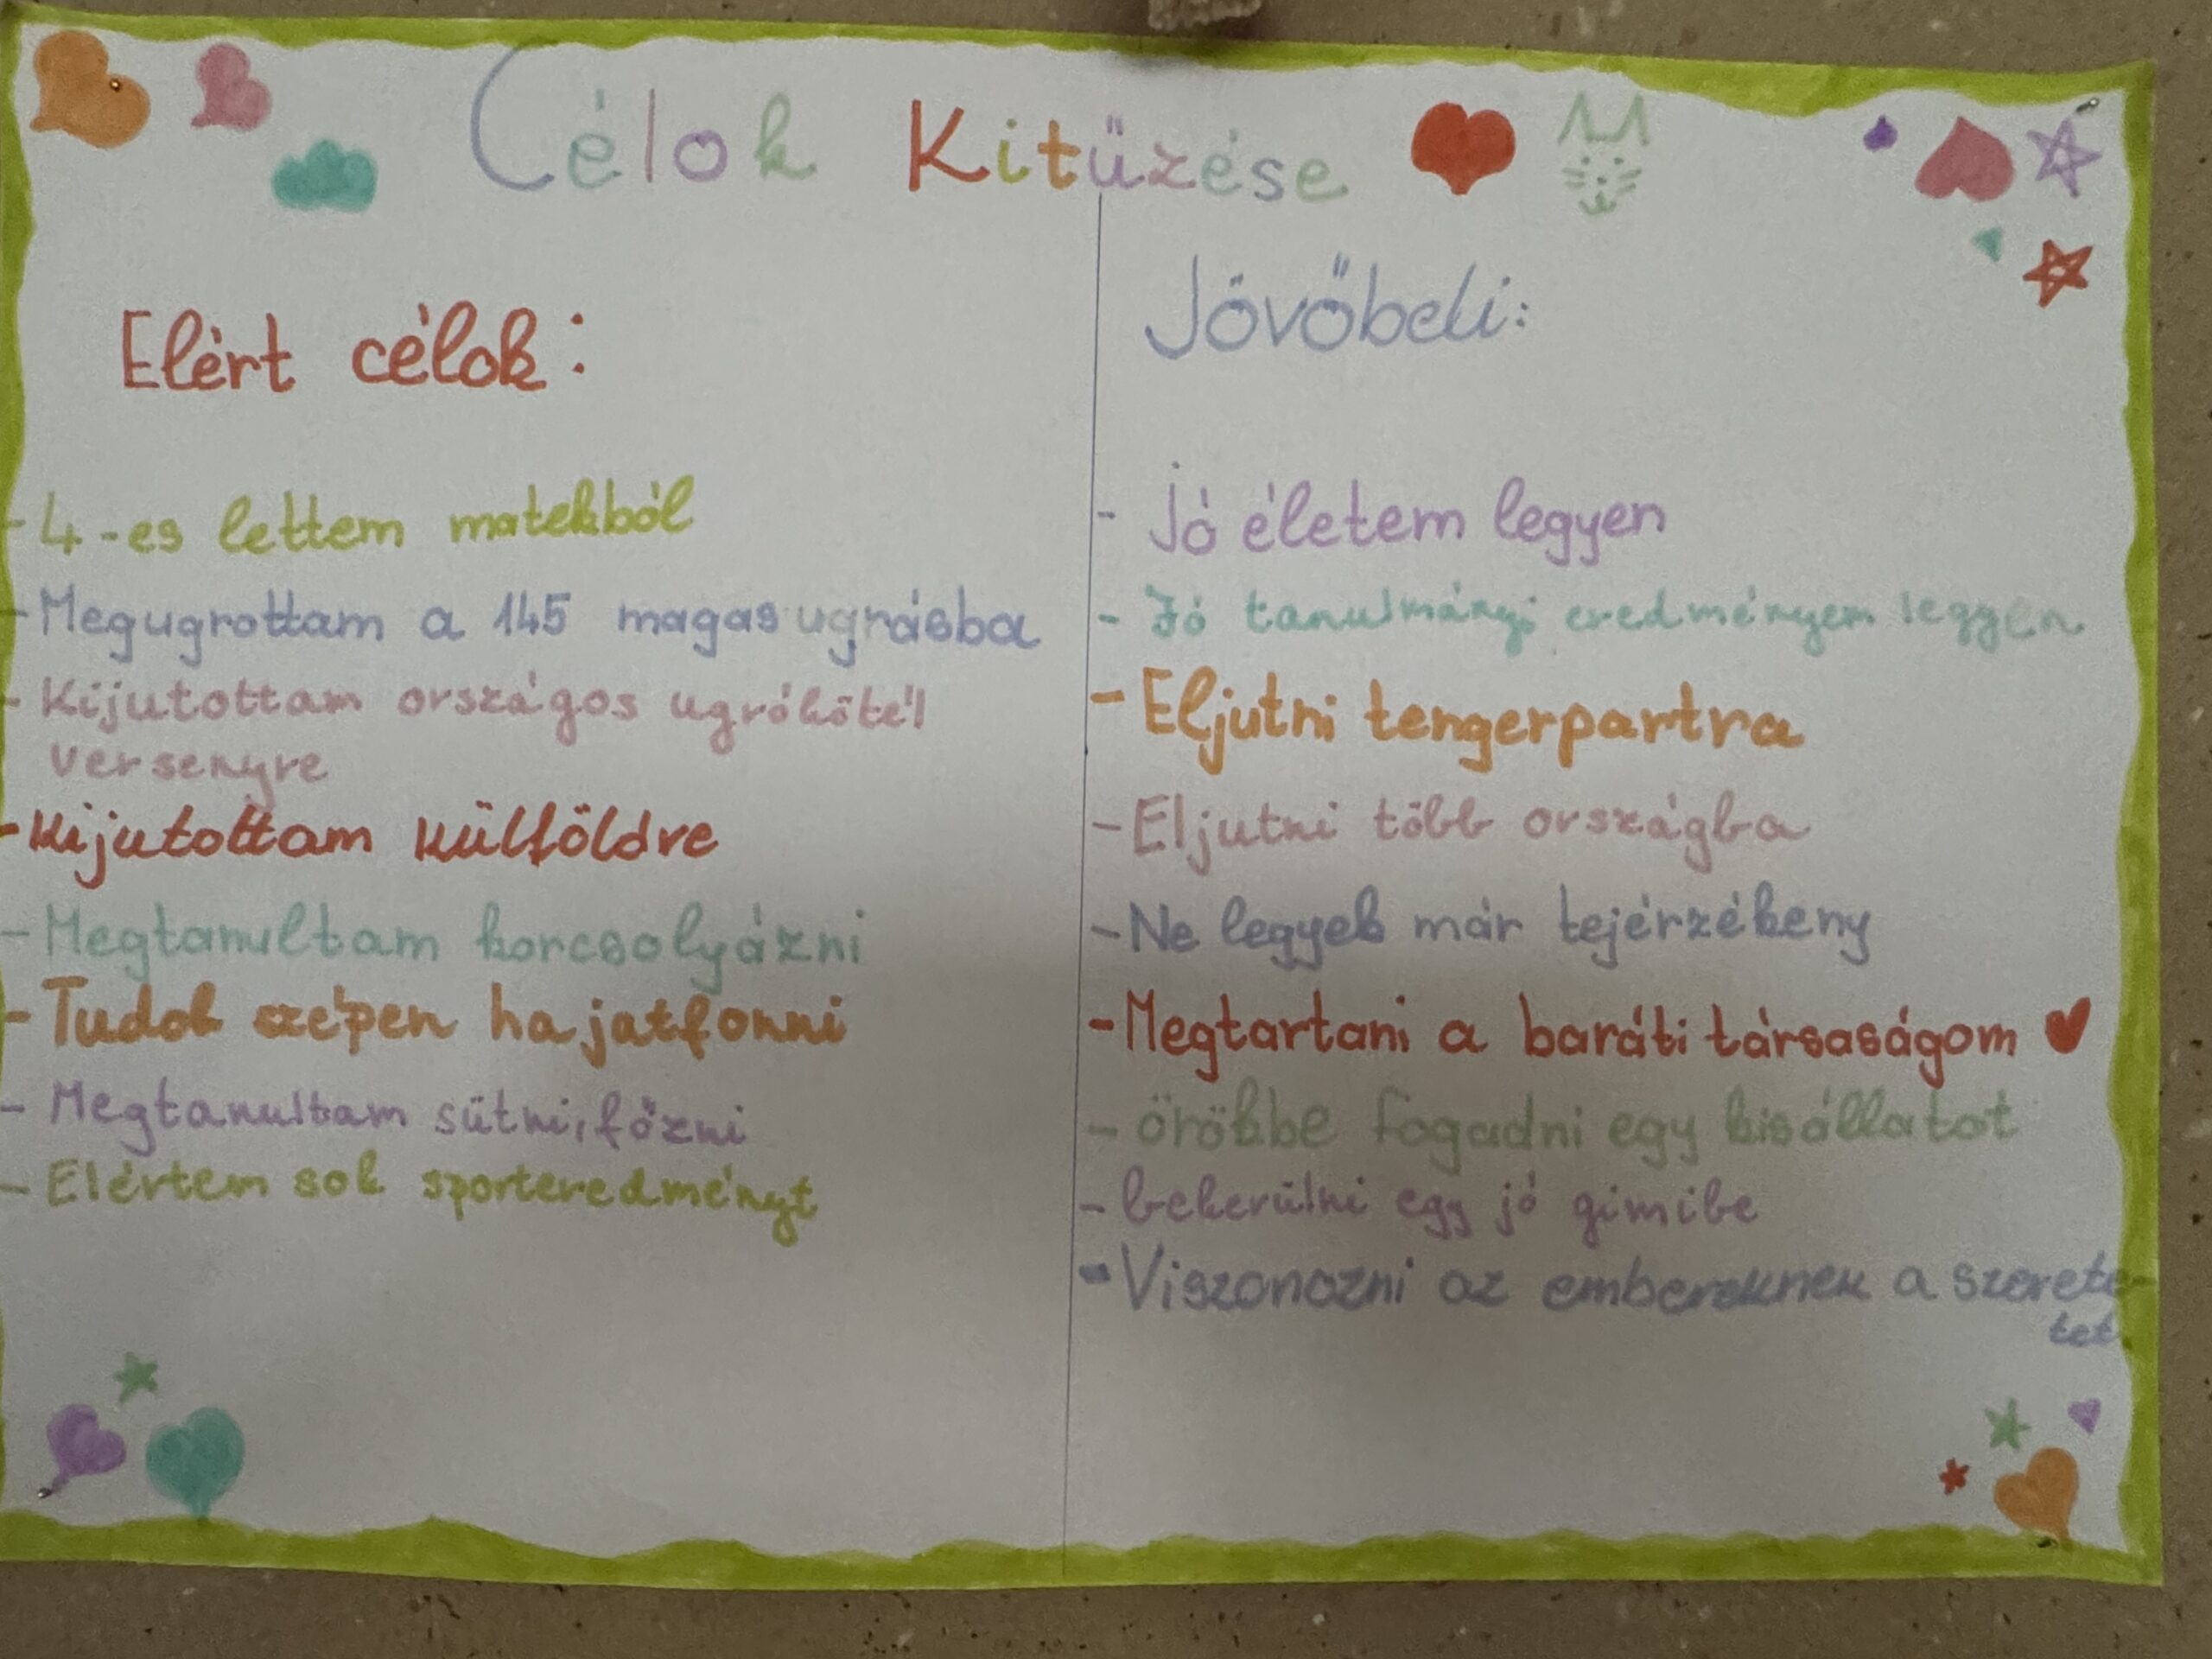 Célok Kitűzése
Elért célok:
- 4-es lettem matekból
- Megugrottam a 145 magasugrásba
- Kijutottam országos ugrókötél
versenyre
- Kijutottam külföldre
- Megtanultam korcsolyázni
- Tudok szépen hajatfonni
- Megtanultam sütni, főzni
- Elértem sok sporteredményt
Jövőbeli:
- Jó életem legyen
- Jó tanulmányi eredményem legyen
- Eljutni tengerpartra
- Eljutni több országba
- Ne legyek már tejérzékeny
- Megtartani a baráti társaságom
- örökbe fogadni egy kisállatot
- bekerülni egy jó gimibe
- Viszonozni az embereknek a szerete-
tet